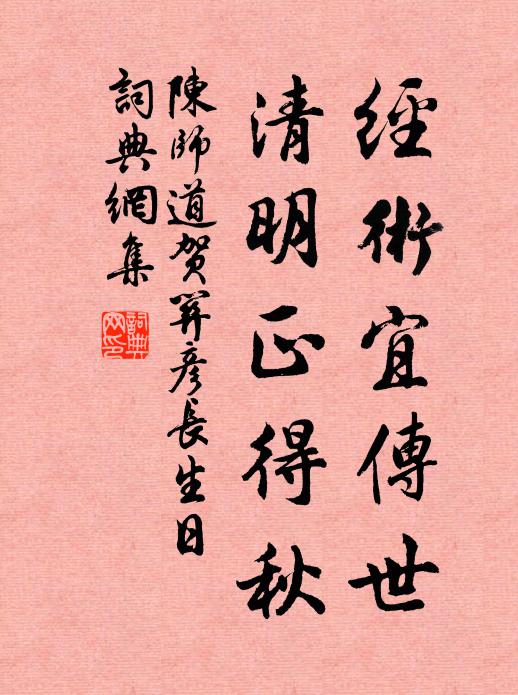 經術宜傳世
清明正得秋
陳師道賀關彥長生日
詞典網集
詞典
网印